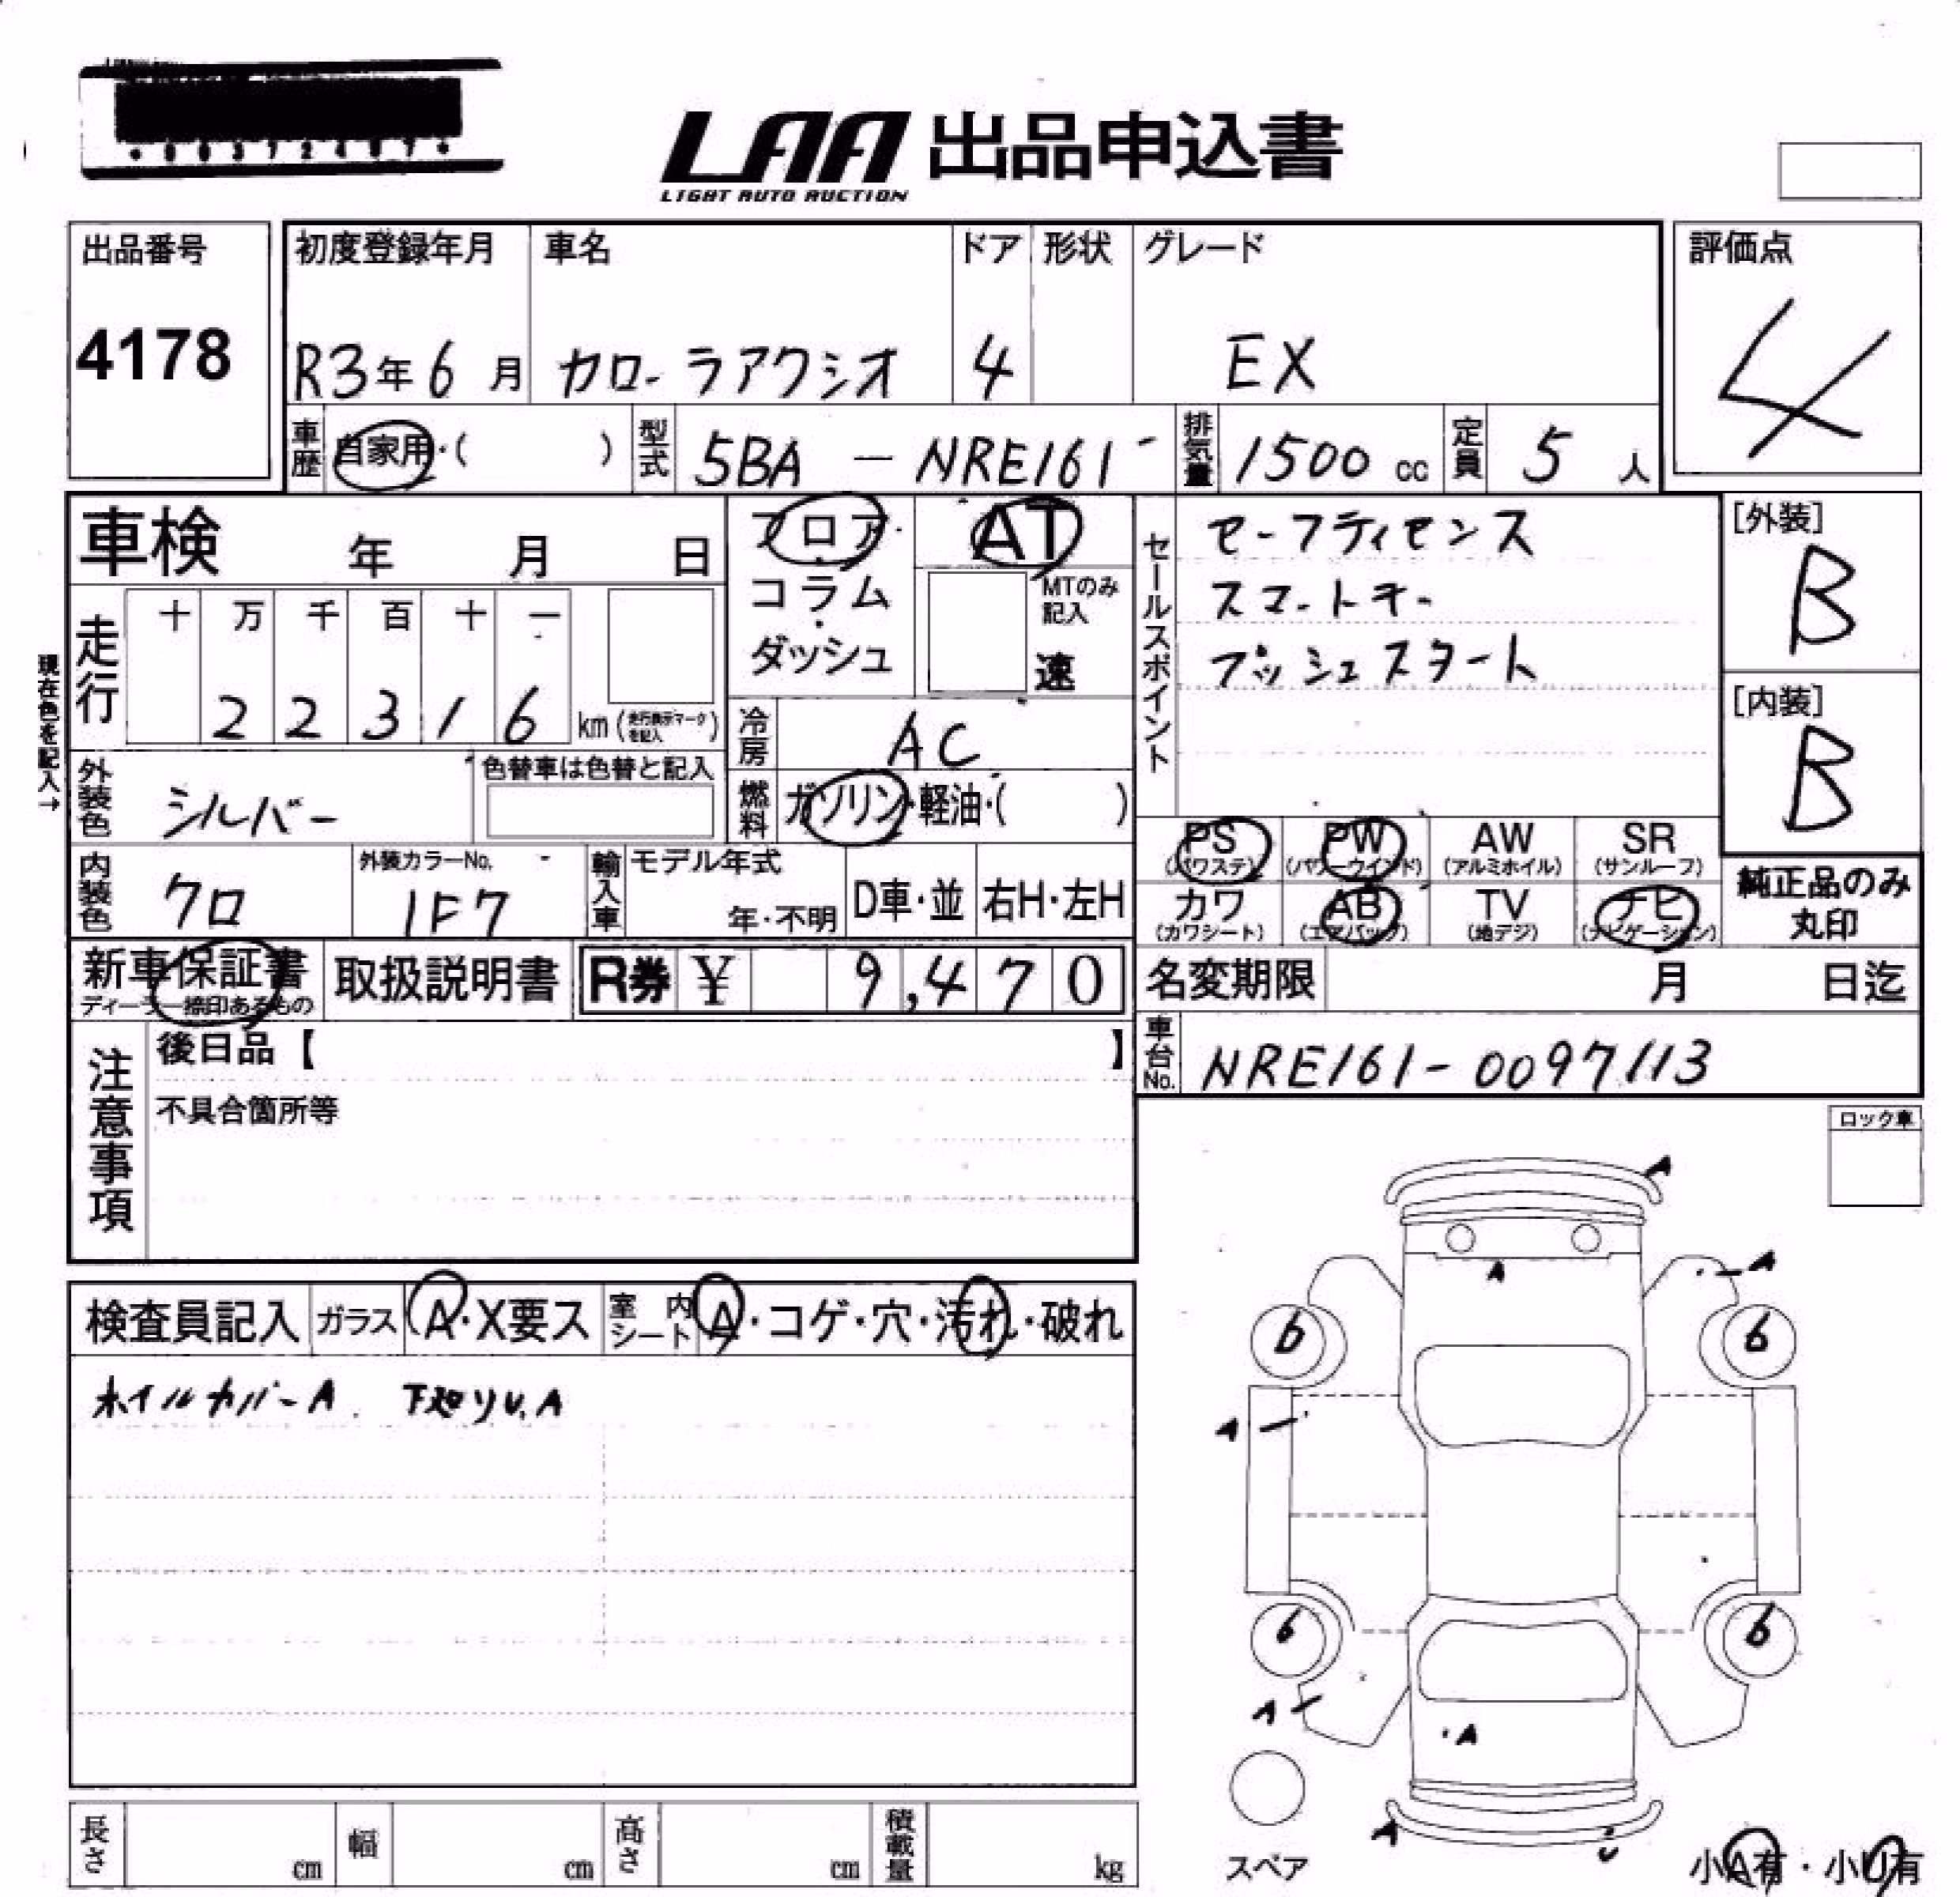 LAA 出品申込書
LIGHT AUTO AUCTION
出品番号
4178
初度登録年月
R3年6月
車名
カローラアクシオ
ドア
4
形状
グレード
EX
評価点
4
車歴 自家用・( )
型式 5BA - NRE161
排気量 1500 cc
定員 5 人
車検 年 月 日
フロア・
コラム
・
ダッシュ
AT
MTのみ
記入
速
セールスポイント
セーフティセンス
スマートキー
プッシュスタート
[外装]
B
[内装]
B
現在色を記入→
走行
十 万 千 百 十 一
2 2 3 1 6 km (走行表示マークを記入)
冷房 AC
外装色 シルバー
色替車は色替と記入
燃料 ガソリン・軽油・( )
内装色 クロ
外装カラーNo.
1F7
輸入車
モデル年式
年・不明
D車・並
右H・左H
PS (パワステ)
PW (パワーウインド)
AW (アルミホイル)
SR (サンルーフ)
カワ (カワシート)
AB (エアバッグ)
TV (地デジ)
ナビ (ナビゲーション)
純正品のみ
丸印
新車保証書
ディーラー捺印あるもの
取扱説明書
R券 ¥ 9,470
名変期限 月 日迄
車台No. NRE161-0097113
注意事項
後日品【 】
不具合箇所等
ロック車
検査員記入
ガラス A・X要ス
室内シート A・コゲ・穴・汚れ・破れ
ホイルカバーA. 下廻りU.A
A
A
A
6
6
A
6
6
A
A
A
U
スペア
小A有・小U有
長さ cm
幅 cm
高さ cm
積載量 kg